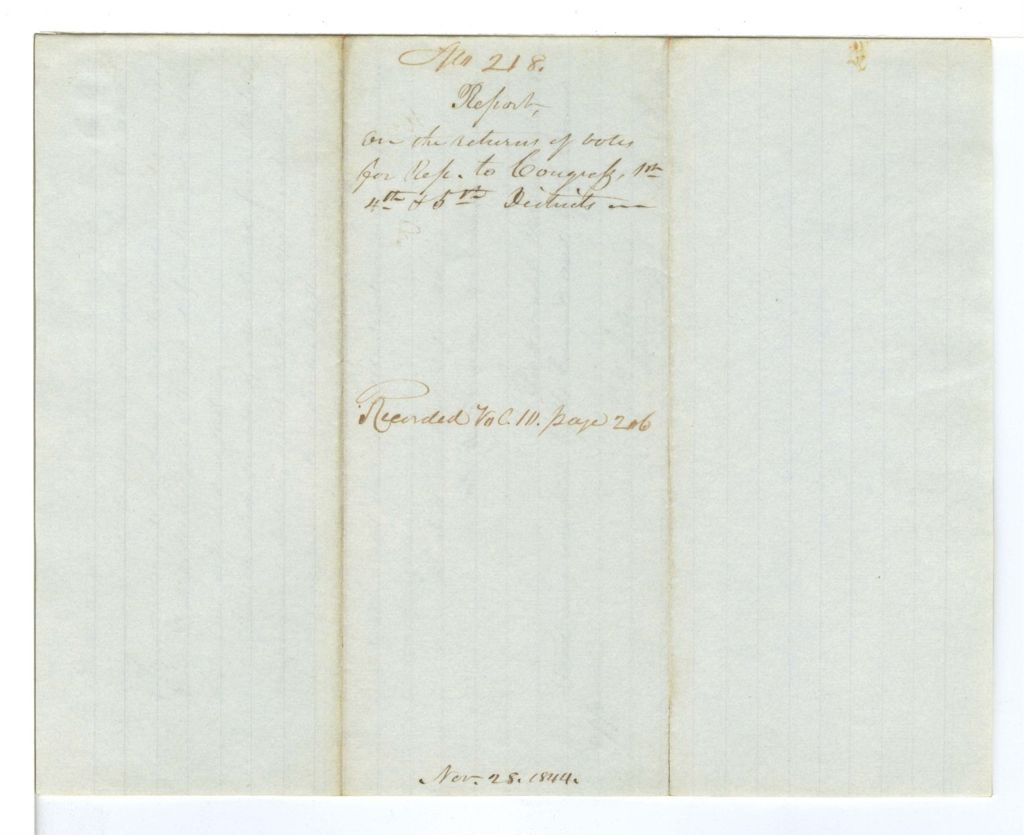 No 218.
Report,
on the returns of votes
for Rep. to Congress, 1st
4th & 5th Districts —
Recorded Vol. 10. page 206
Nov. 28. 1844.